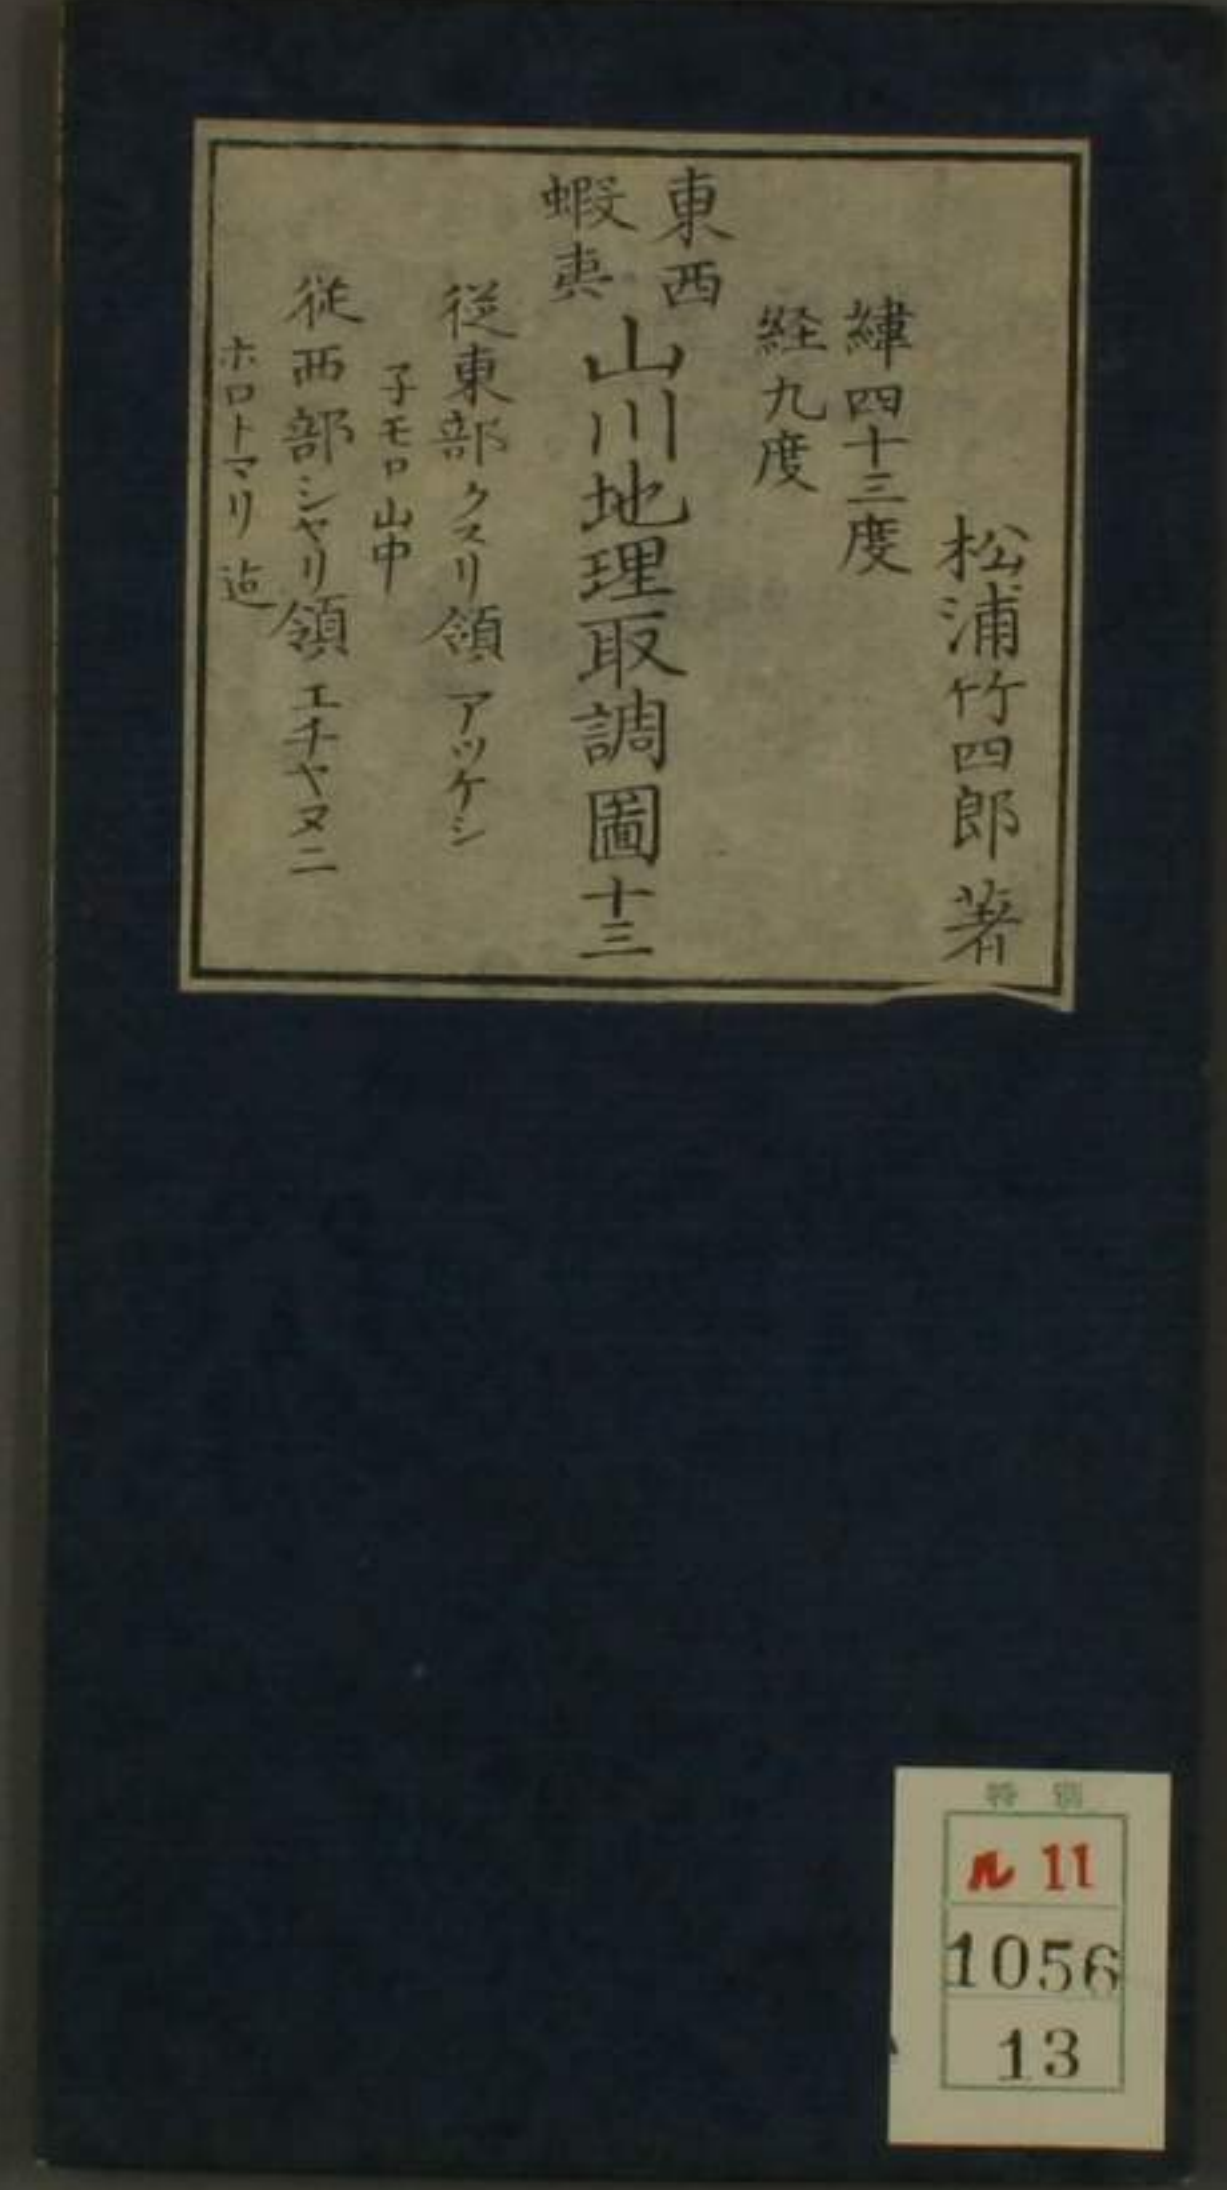 松浦竹四郎著
緯四十三度
経九度
東西
蝦夷
山川地理取調圖十三
従東部クスリ領アツケシ
子モロ山中
従西部シヤリ領エチヤヌニ
ホロトマリ迠
特別
ル11
1056
13